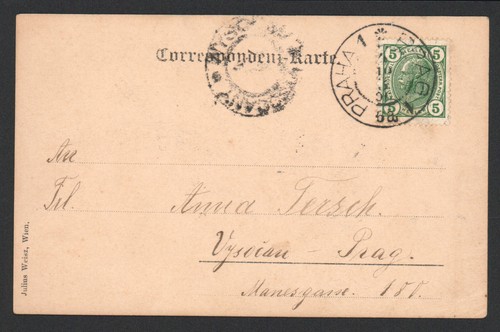 Correspondenz-Karte.
PRAHA 1 * PRAG
5 5
5 5
An
Frl. Anna Tersch.
Prag.
Manesgasse.
Julius Weisz, Wien.